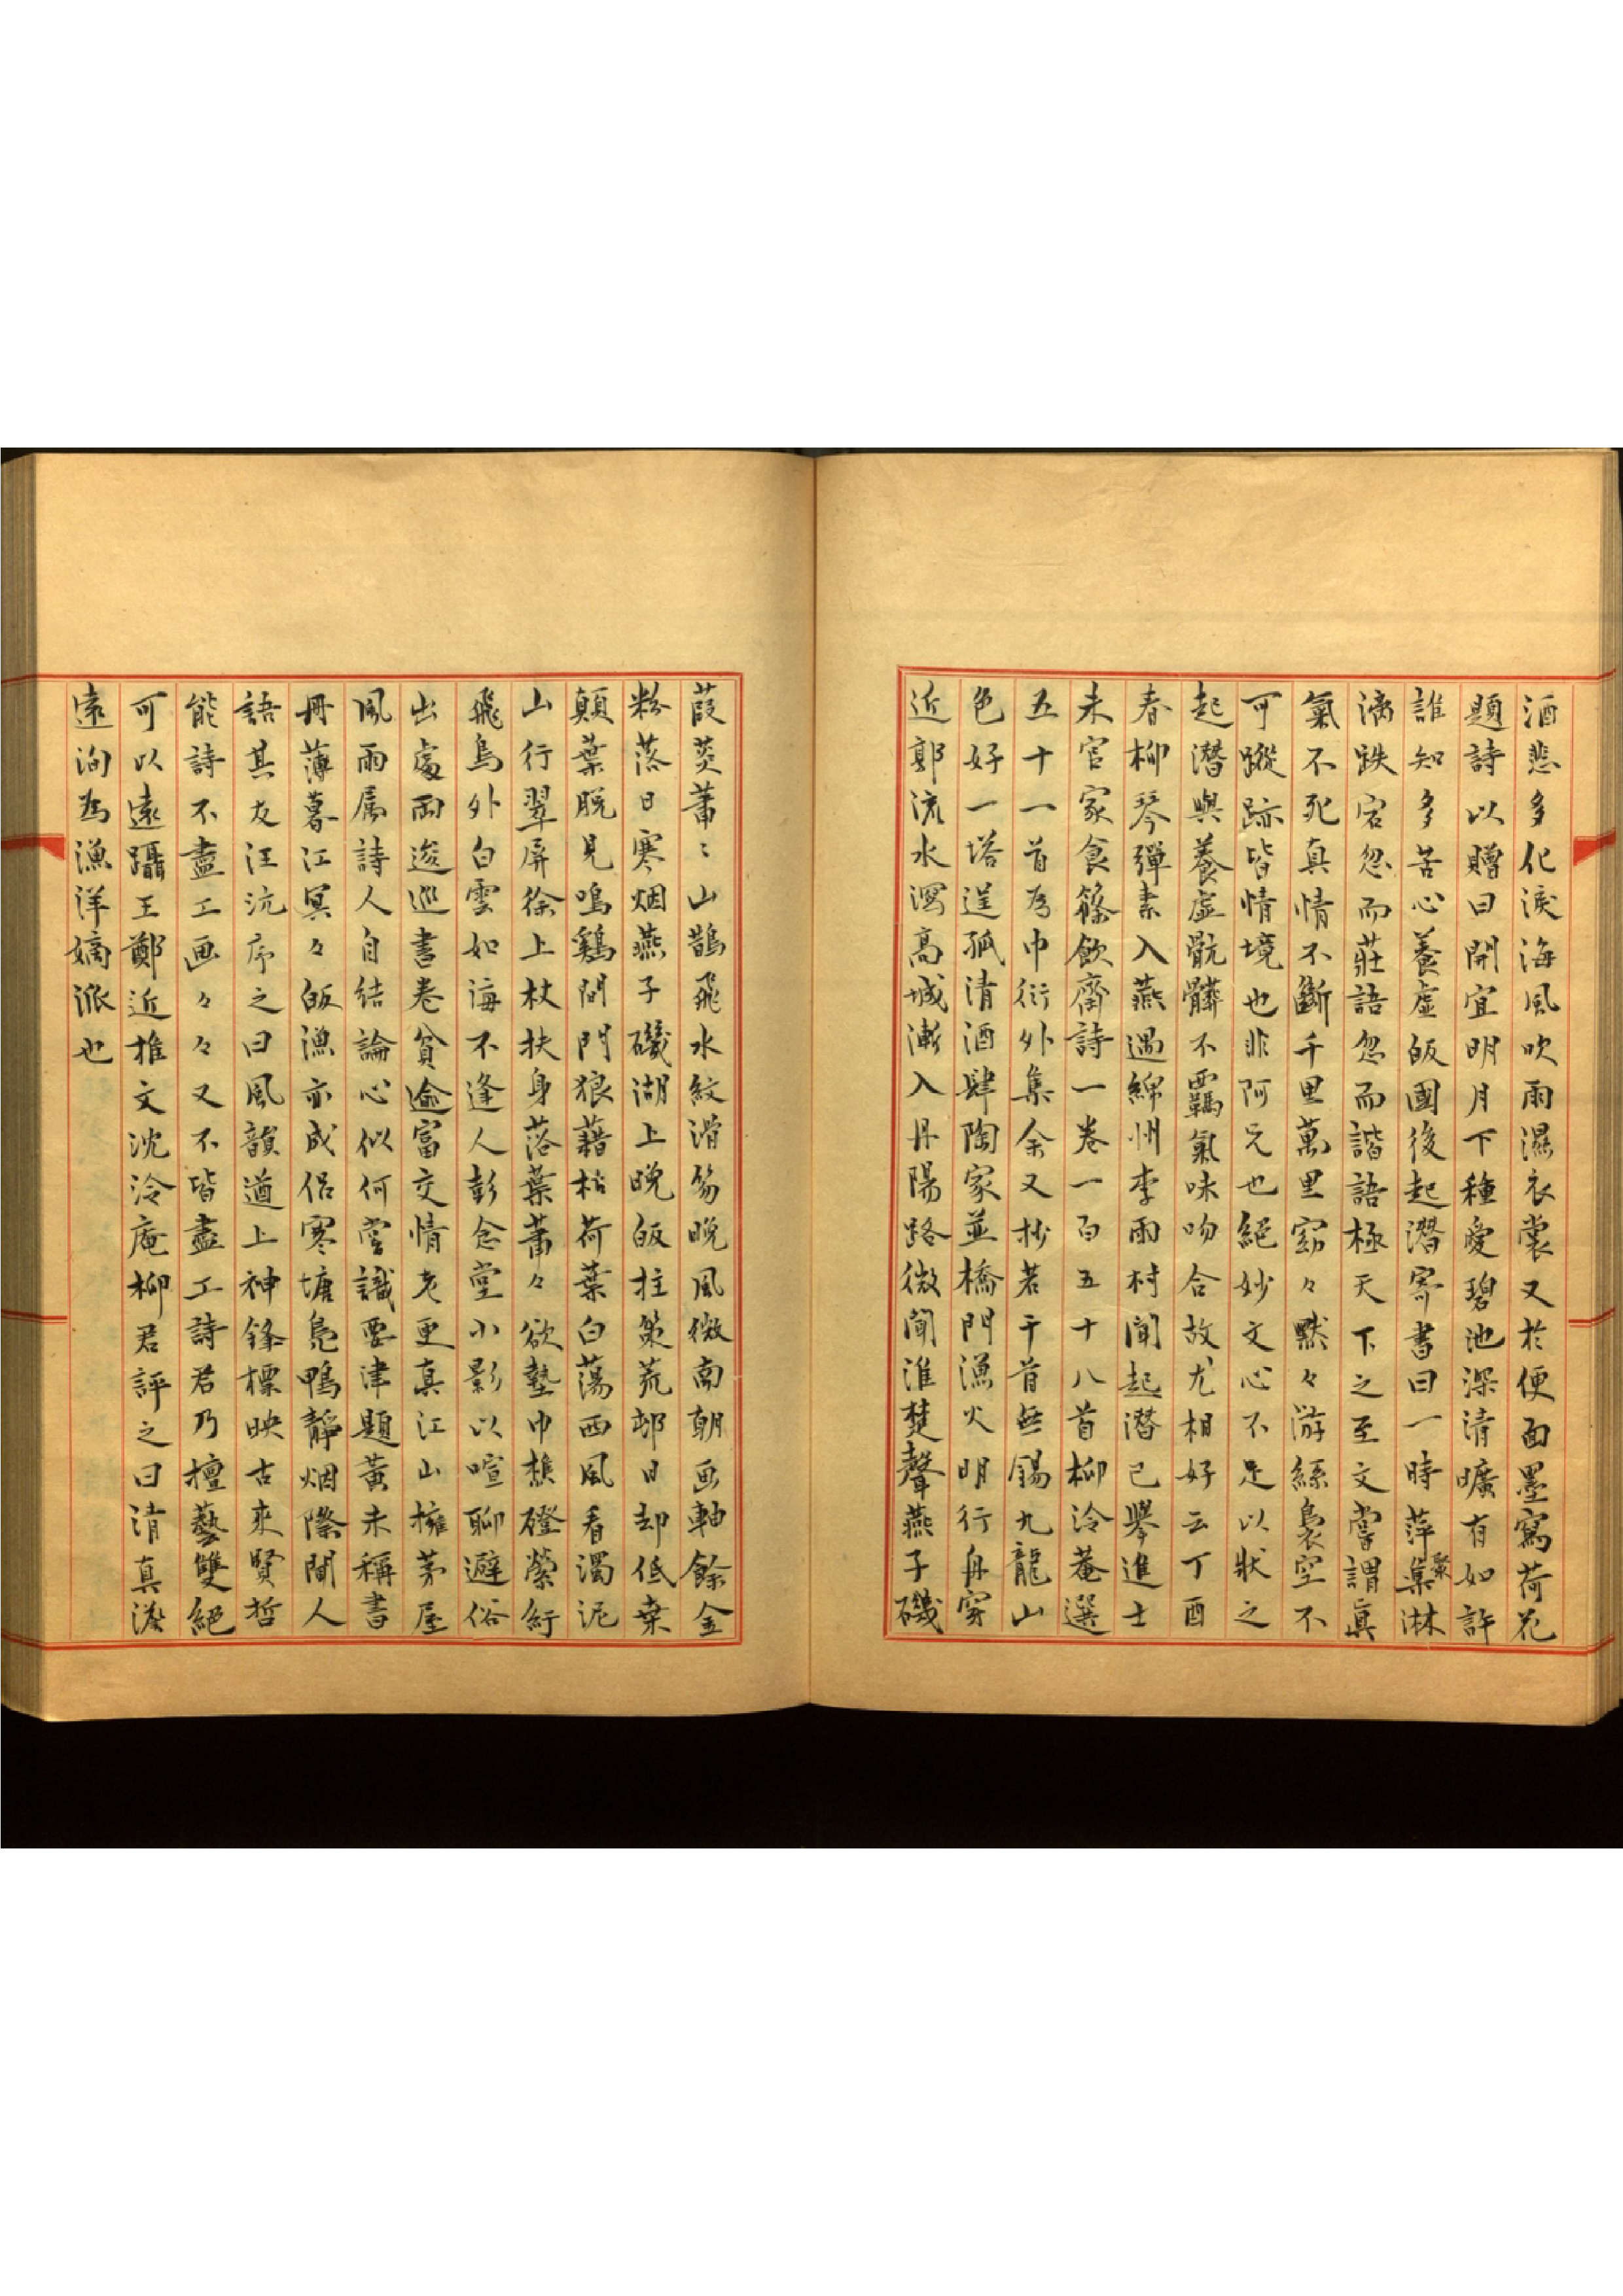 酒悲多化淚海風吹雨濕衣裳又於便面墨寫荷花
題詩以贈曰開宜明月下種愛碧池深清曠有如許
誰知多苦心養虛皈國後起潛寄書曰一時萍聚淋
漓跌宕忽而莊語忽而諧語極天下之至文嘗謂真
氣不死真情不斷千里萬里窈々默々游絲裊空不
可蹤跡皆情境也非阿兄也絕妙文心不足以狀之
起潛與養虛骯髒不羈氣味吻合故尤相好云丁酉
春柳琴彈素入燕遇綿州李雨村聞起潛已舉進士
未官家食篠飲齋詩一卷一百五十八首柳泠菴選
五十一首為巾衍外集余又抄若干首無錫九龍山
色好一塔逞孤清酒肆陶家並橋門漁火明行舟穿
近郭流水瀉高城漸入丹陽路微聞淮楚聲燕子磯
葭菼蕭〻山鵲飛水紋滑笏晚風微南朝画軸餘金
粉落日寒烟燕子磯湖上晚皈拄策荒邨日却低桒
顛葉脫見鳴鷄閉門狼藉枯荷葉白蕩西風看濁泥
山行翠屏徐上杖扶身落葉蕭々欲墊巾樵磴縈紆
飛鳥外白雲如海不逢人彭念堂小影以喧聊避俗
出處兩逡巡書卷貧逾富交情老更真江山擁茅屋
風雨屬詩人自結論心似何嘗識要津題黃未稱書
冊薄暮江冥々皈漁亦成侶寒塘鳧鴨靜烟際聞人
語其友汪沆序之曰風韻遒上神鋒標映古來賢哲
能詩不盡工画々々又不皆盡工詩君乃擅藝雙絕
可以遠躡王鄭近推文沈泠庵柳君評之曰清真澹
遠洵為漁洋嫡派也